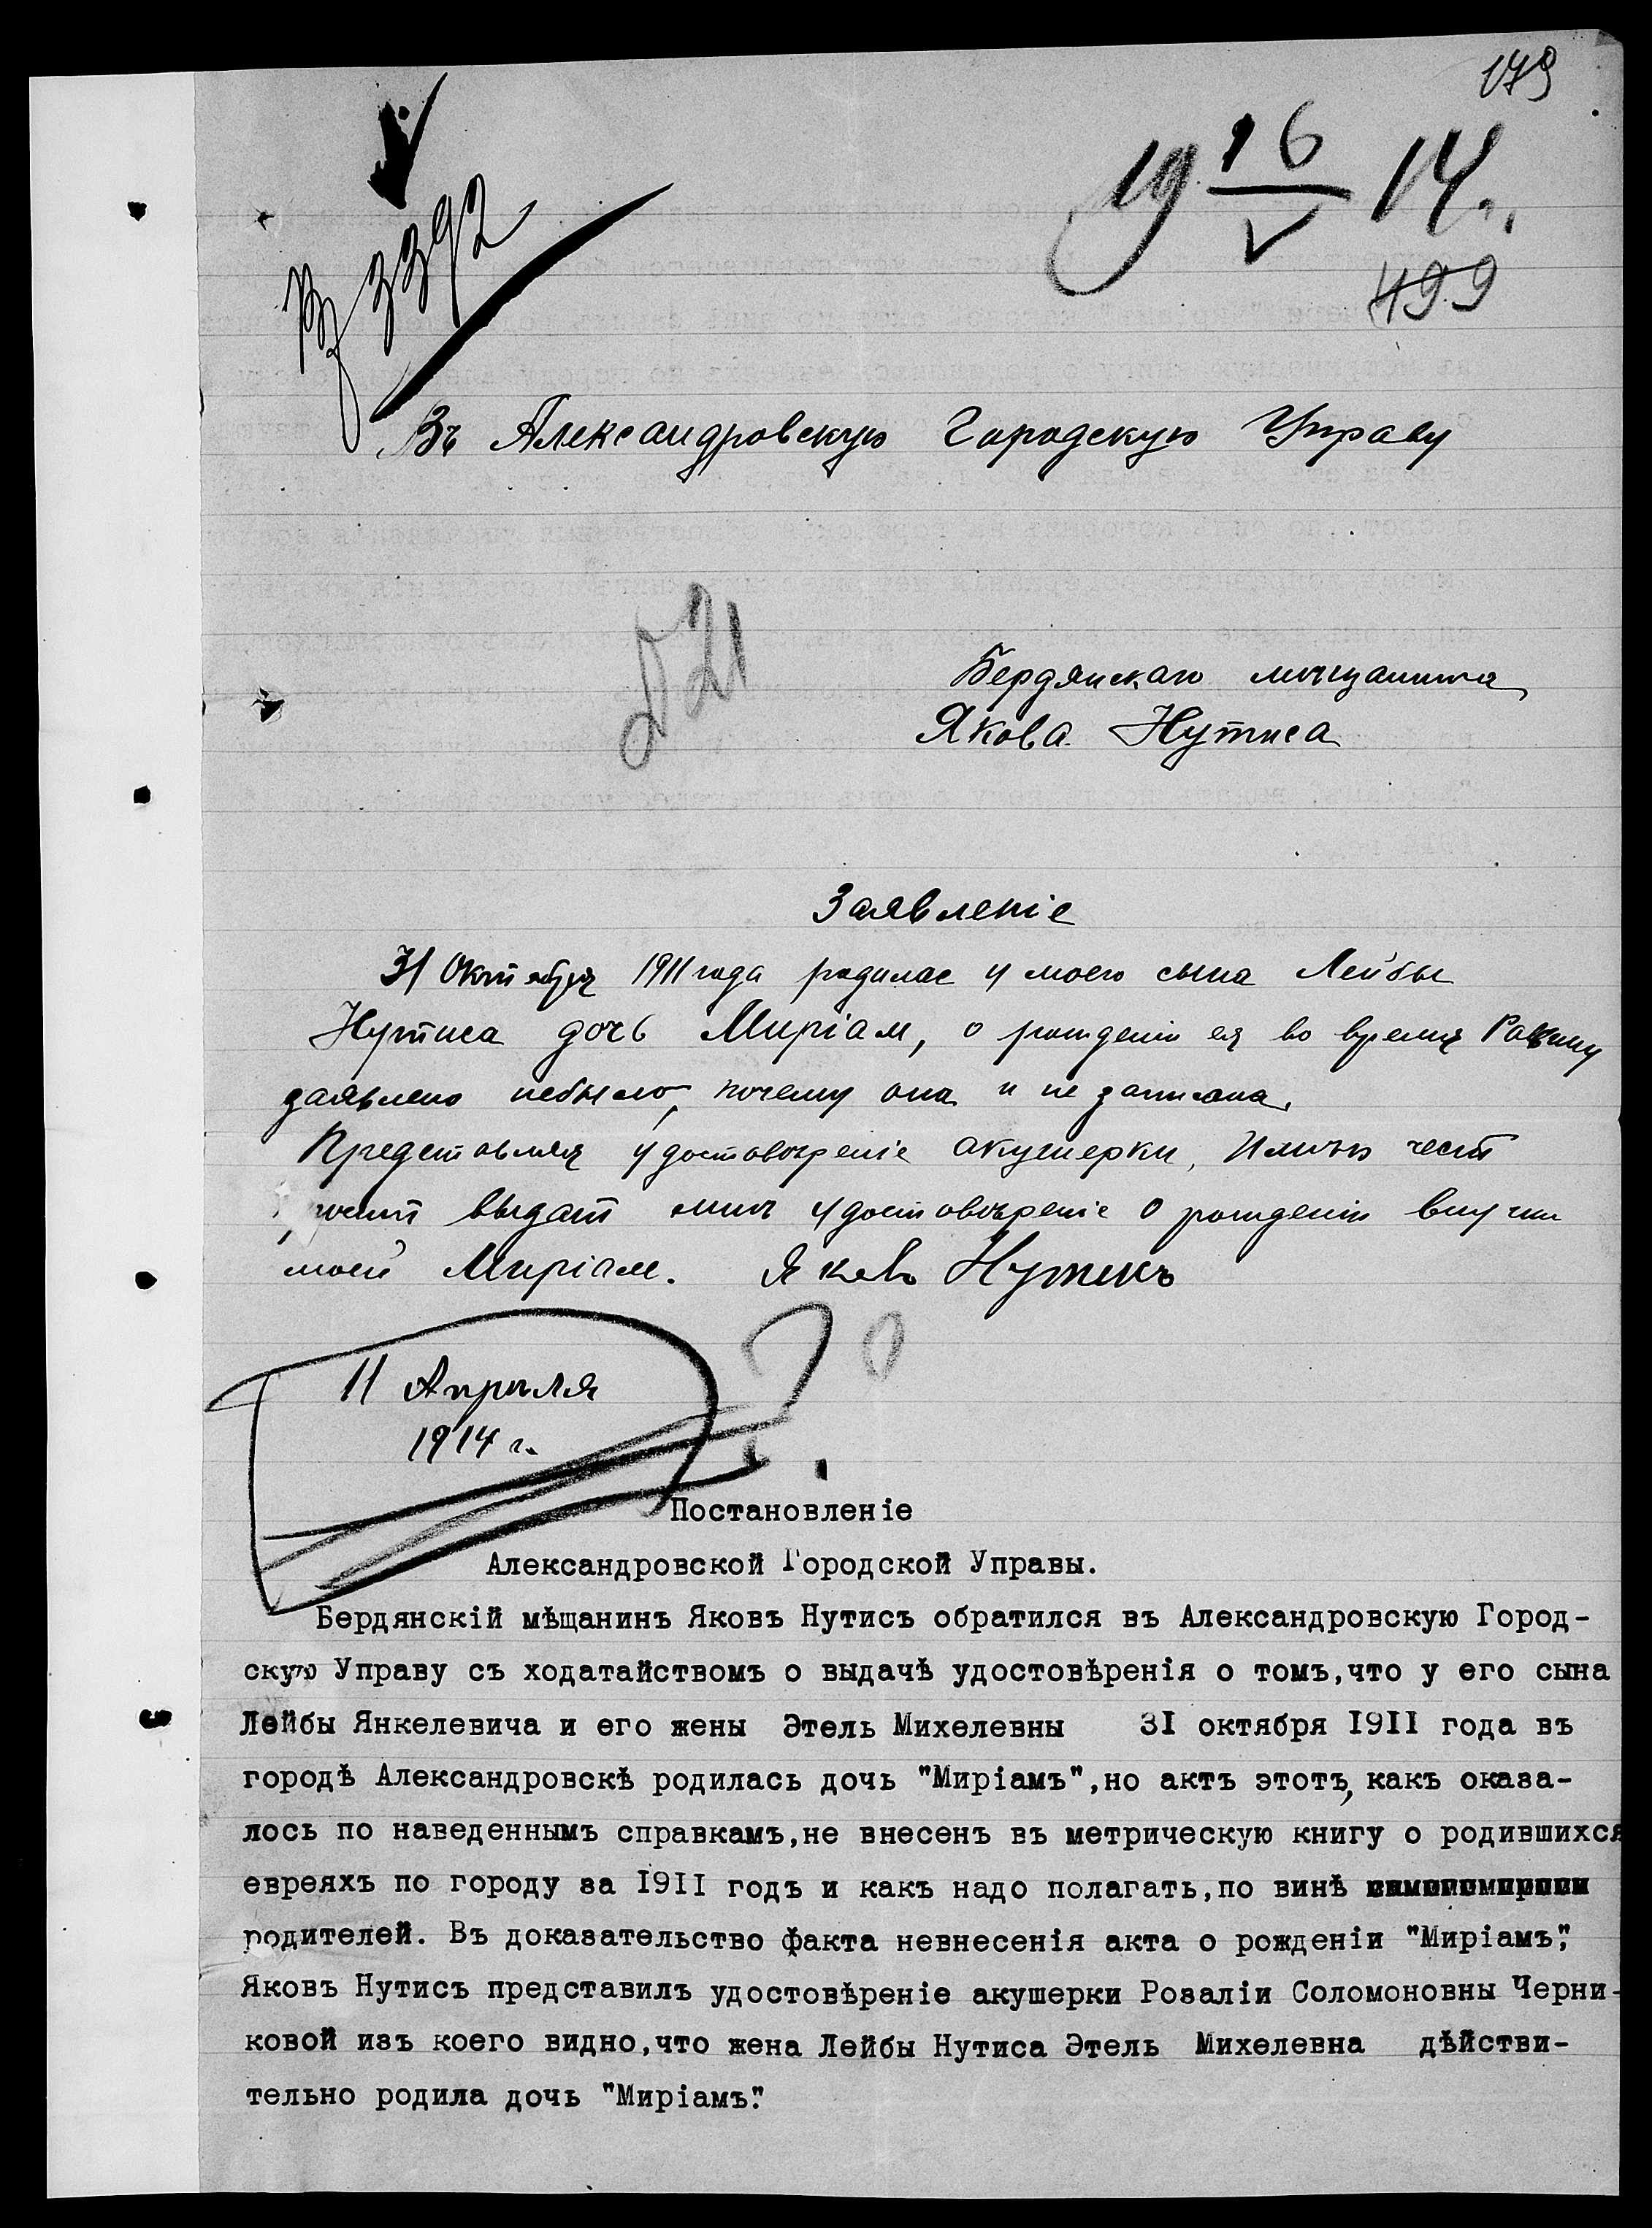 179
19 16/V 14 г.
499
3392
Въ Александровскую Городскую Управу
Д 21
Бердянскаго мѣщанина
Якова Нутиса
Заявленіе
31 Октября 1911 года родилас у моего сына Лейбы
Нутиса дочь Миріам, о рожденіи ея во время Равину
заявлено небыло, почему она и не записана.
Представляя удостовѣреніе акушерки, Имѣю чест
просит выдат мнѣ удостовѣреніе о рожденіи внучки
моей Миріам. Яковъ Нутисъ
11 Апрѣля
1914 г.
Постановленіе
Александровской Городской Управы.
Бердянскій мѣщанинъ Яковъ Нутисъ обратился въ Александровскую Город-
скую Управу съ ходатайствомъ о выдачѣ удостовѣренія о томъ,что у его сына
Лейбы Янкелевича и его жены Этель Михелевны 31 октября 1911 года въ
городѣ Александровскѣ родилась дочь "Миріамъ",но актъ этотъ, какъ оказа-
лось по наведеннымъ справкамъ,не внесенъ въ метрическую книгу о родившихся
евреяхъ по городу за 1911 годъ и какъ надо полагать,по винѣ
родителей. Въ доказательство факта невнесенія акта о рожденіи "Миріамъ",
Яковъ Нутисъ представилъ удостовѣреніе акушерки Розаліи Соломоновны Черни-
ковой изъ коего видно,что жена Лейбы Нутиса Этель Михелевна дѣйстви-
тельно родила дочь "Миріамъ".